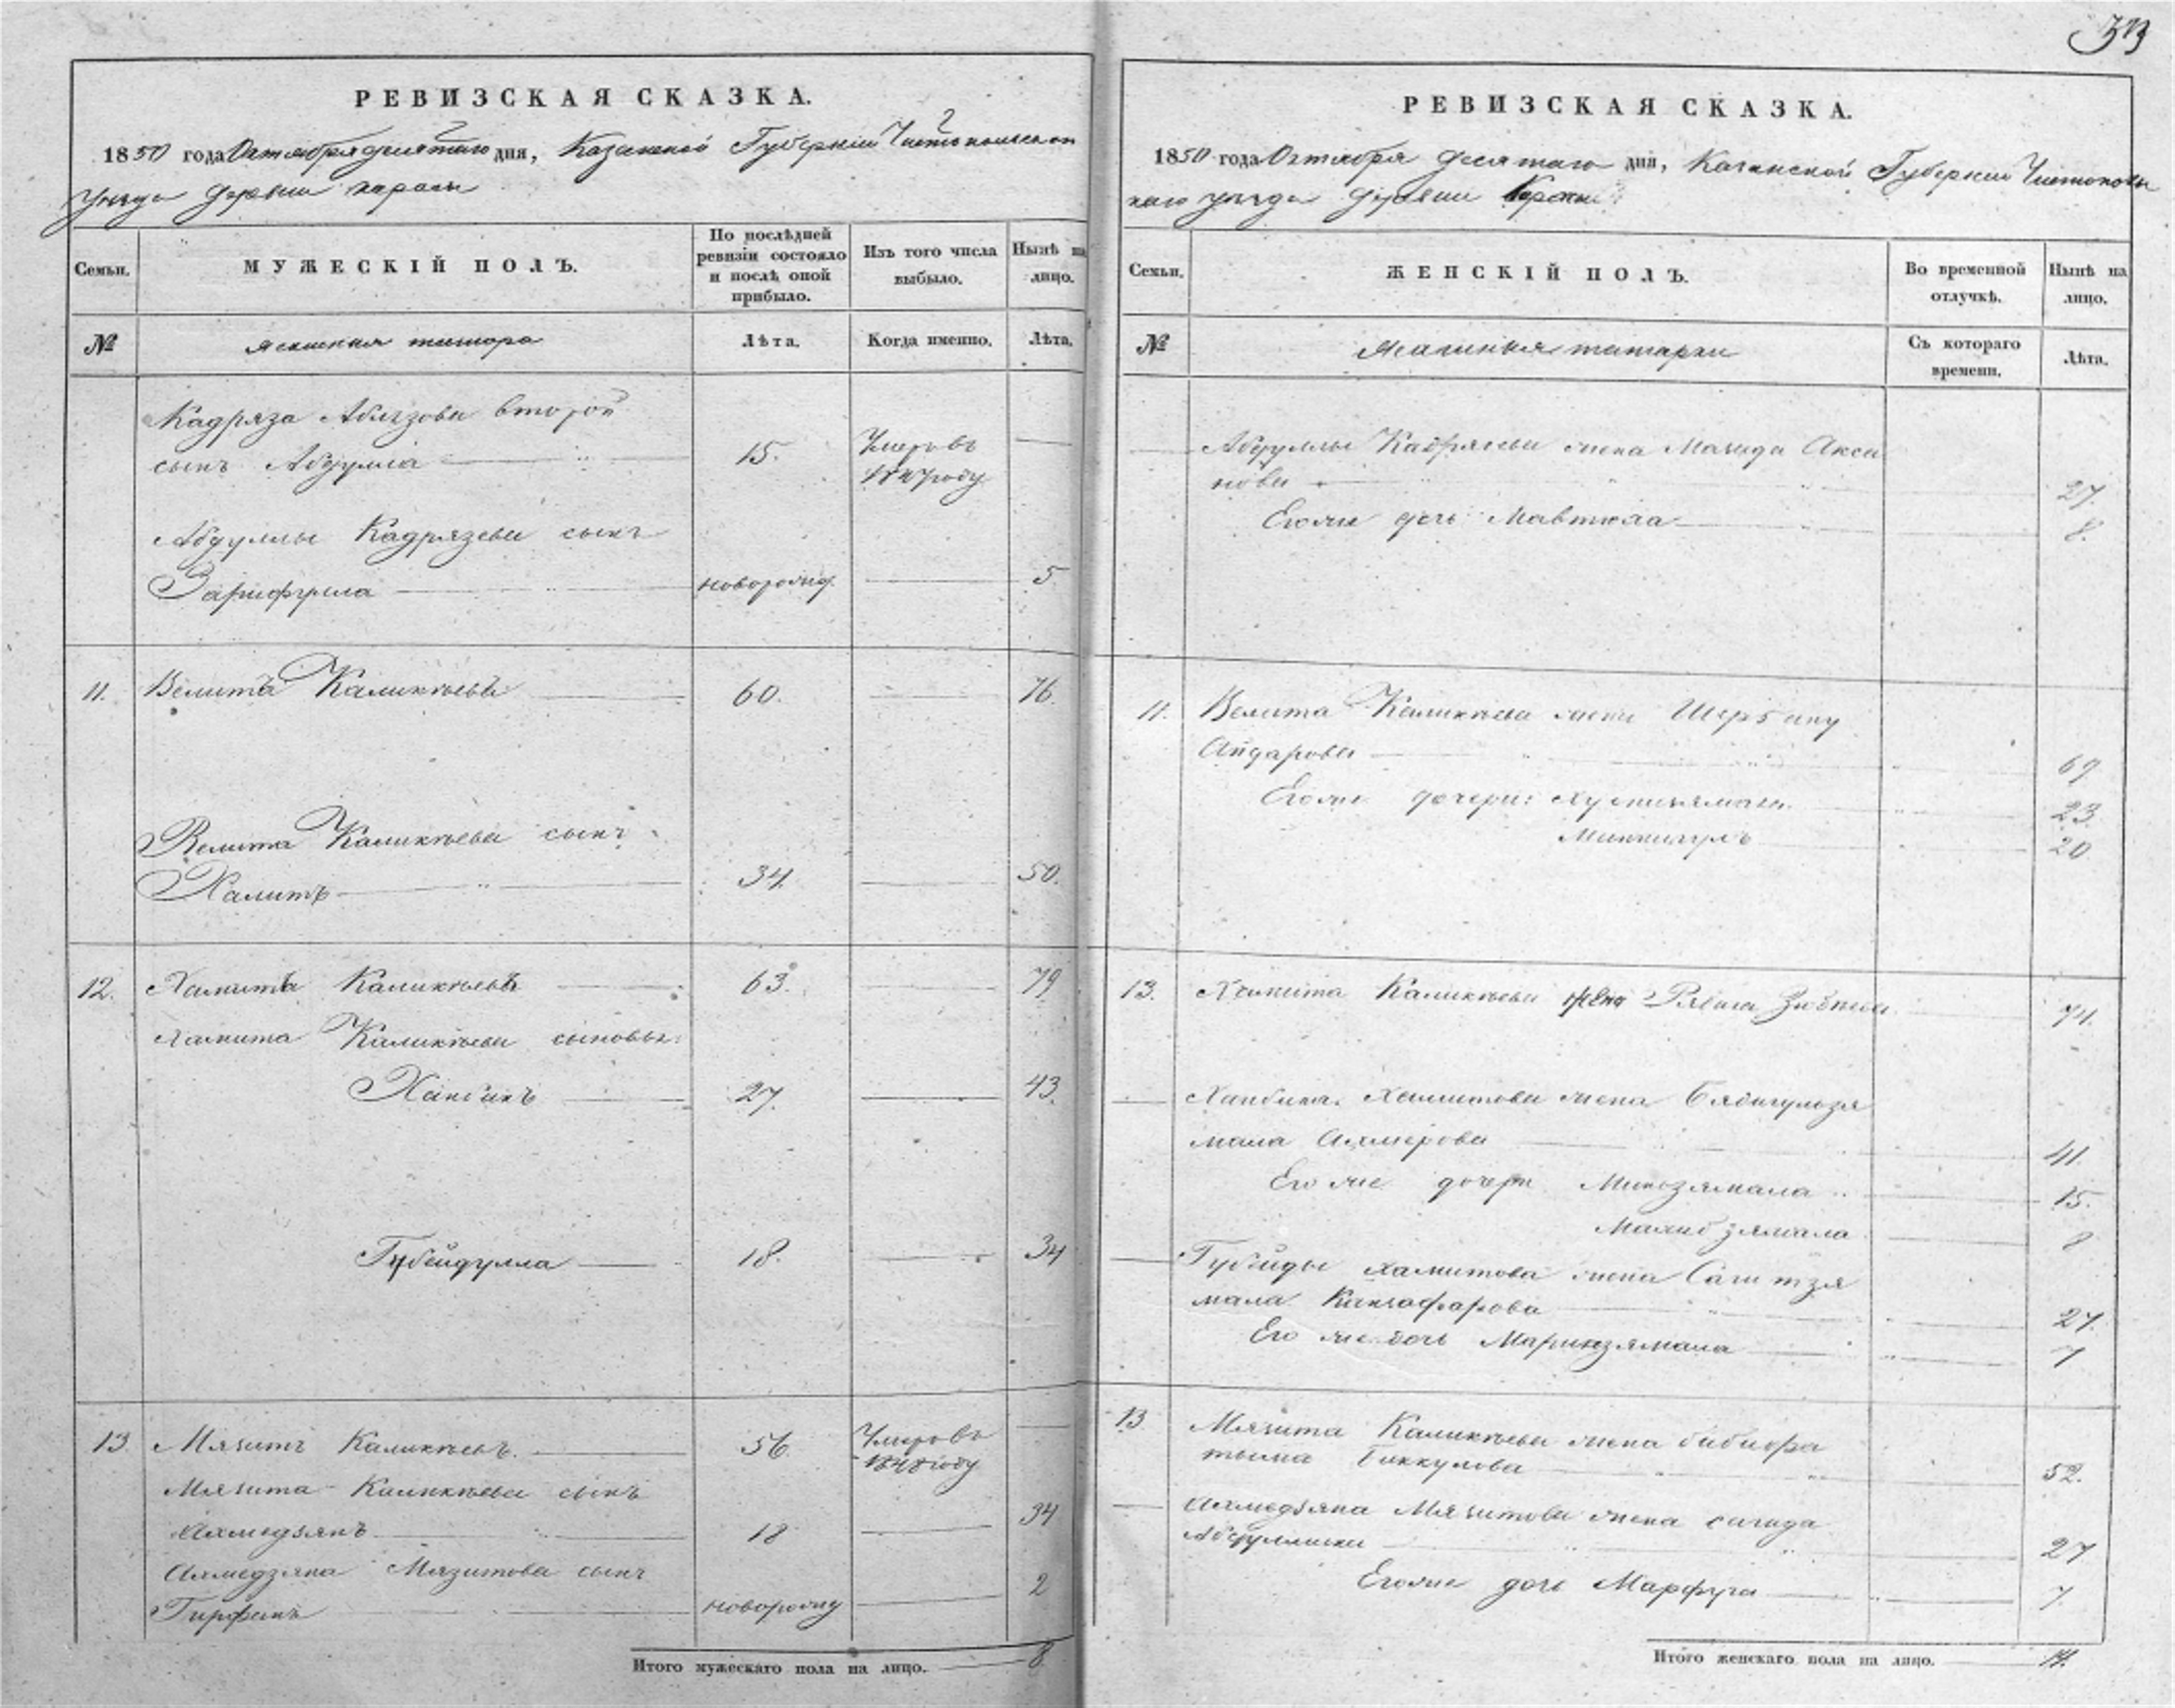 РЕВИЗСКАЯ СКАЗКА.
1850 года Октября десятаго дня, Казанской Губернии Чистопольскаго
уезда деревни
Семьи.
МУЖЕСКІЙ ПОЛЪ.
По послѣдней ревизіи состояло и послѣ оной прибыло.
Изъ того числа выбыло.
Нынѣ на лицо.
№
Ясашныя татара
Лѣта.
Когда именно.
Лѣта.
Кадряза Аблязова второй
сынъ Абдулла 15. Умеръ въ
1847 году
Абдуллы Кадрязева сынъ
Зарифулла новорожд. 5
11. Велитъ Каликѣевъ 60. 76
Велита Каликѣева сынъ
Халитъ 34. 50.
12. Хамитъ Каликѣевъ 63. 79
Хамита Каликѣева сыновья:
Ханбикъ 27. 43.
Губейдулла 18. 34
13 Мязитъ Каликѣевъ. 56 Умеръ въ
1848 году
Мязита Каликѣева сынъ
Ахмедзянъ 18 34
Ахмедзяна Мязитова сынъ
новорожд 2
Итого мужескаго пола на лицо. 8
РЕВИЗСКАЯ СКАЗКА.
1850 года Октября десятаго дня, Казанской Губернии Чистополь
скаго уезда деревни
Семьи.
ЖЕНСКІЙ ПОЛЪ.
Во временной отлучкѣ.
Нынѣ на лицо.
№
Ясашныя татарки
Съ котораго времени.
Лѣта.
Абдуллы Кадрясева жена Махида
27.
Его же дочь 8.
11. Велита Каликѣева жена
Айдарова 69
Его же дочери: 23
20
13. Хамита Каликѣева жена 74.
Ханбика Хамитова жена
мала 41.
Его же дочери Минзямала 15.
8
Губейды Хамитова жена Сагитзя
мала 27.
Его же дочь 7
13 Мязита Каликѣева жена Бибифа
тыма Биккулова 52.
Ахмедзяна Мязитова жена Сагида
27
Его же дочь Марфуга 7
Итого женскаго пола на лицо.